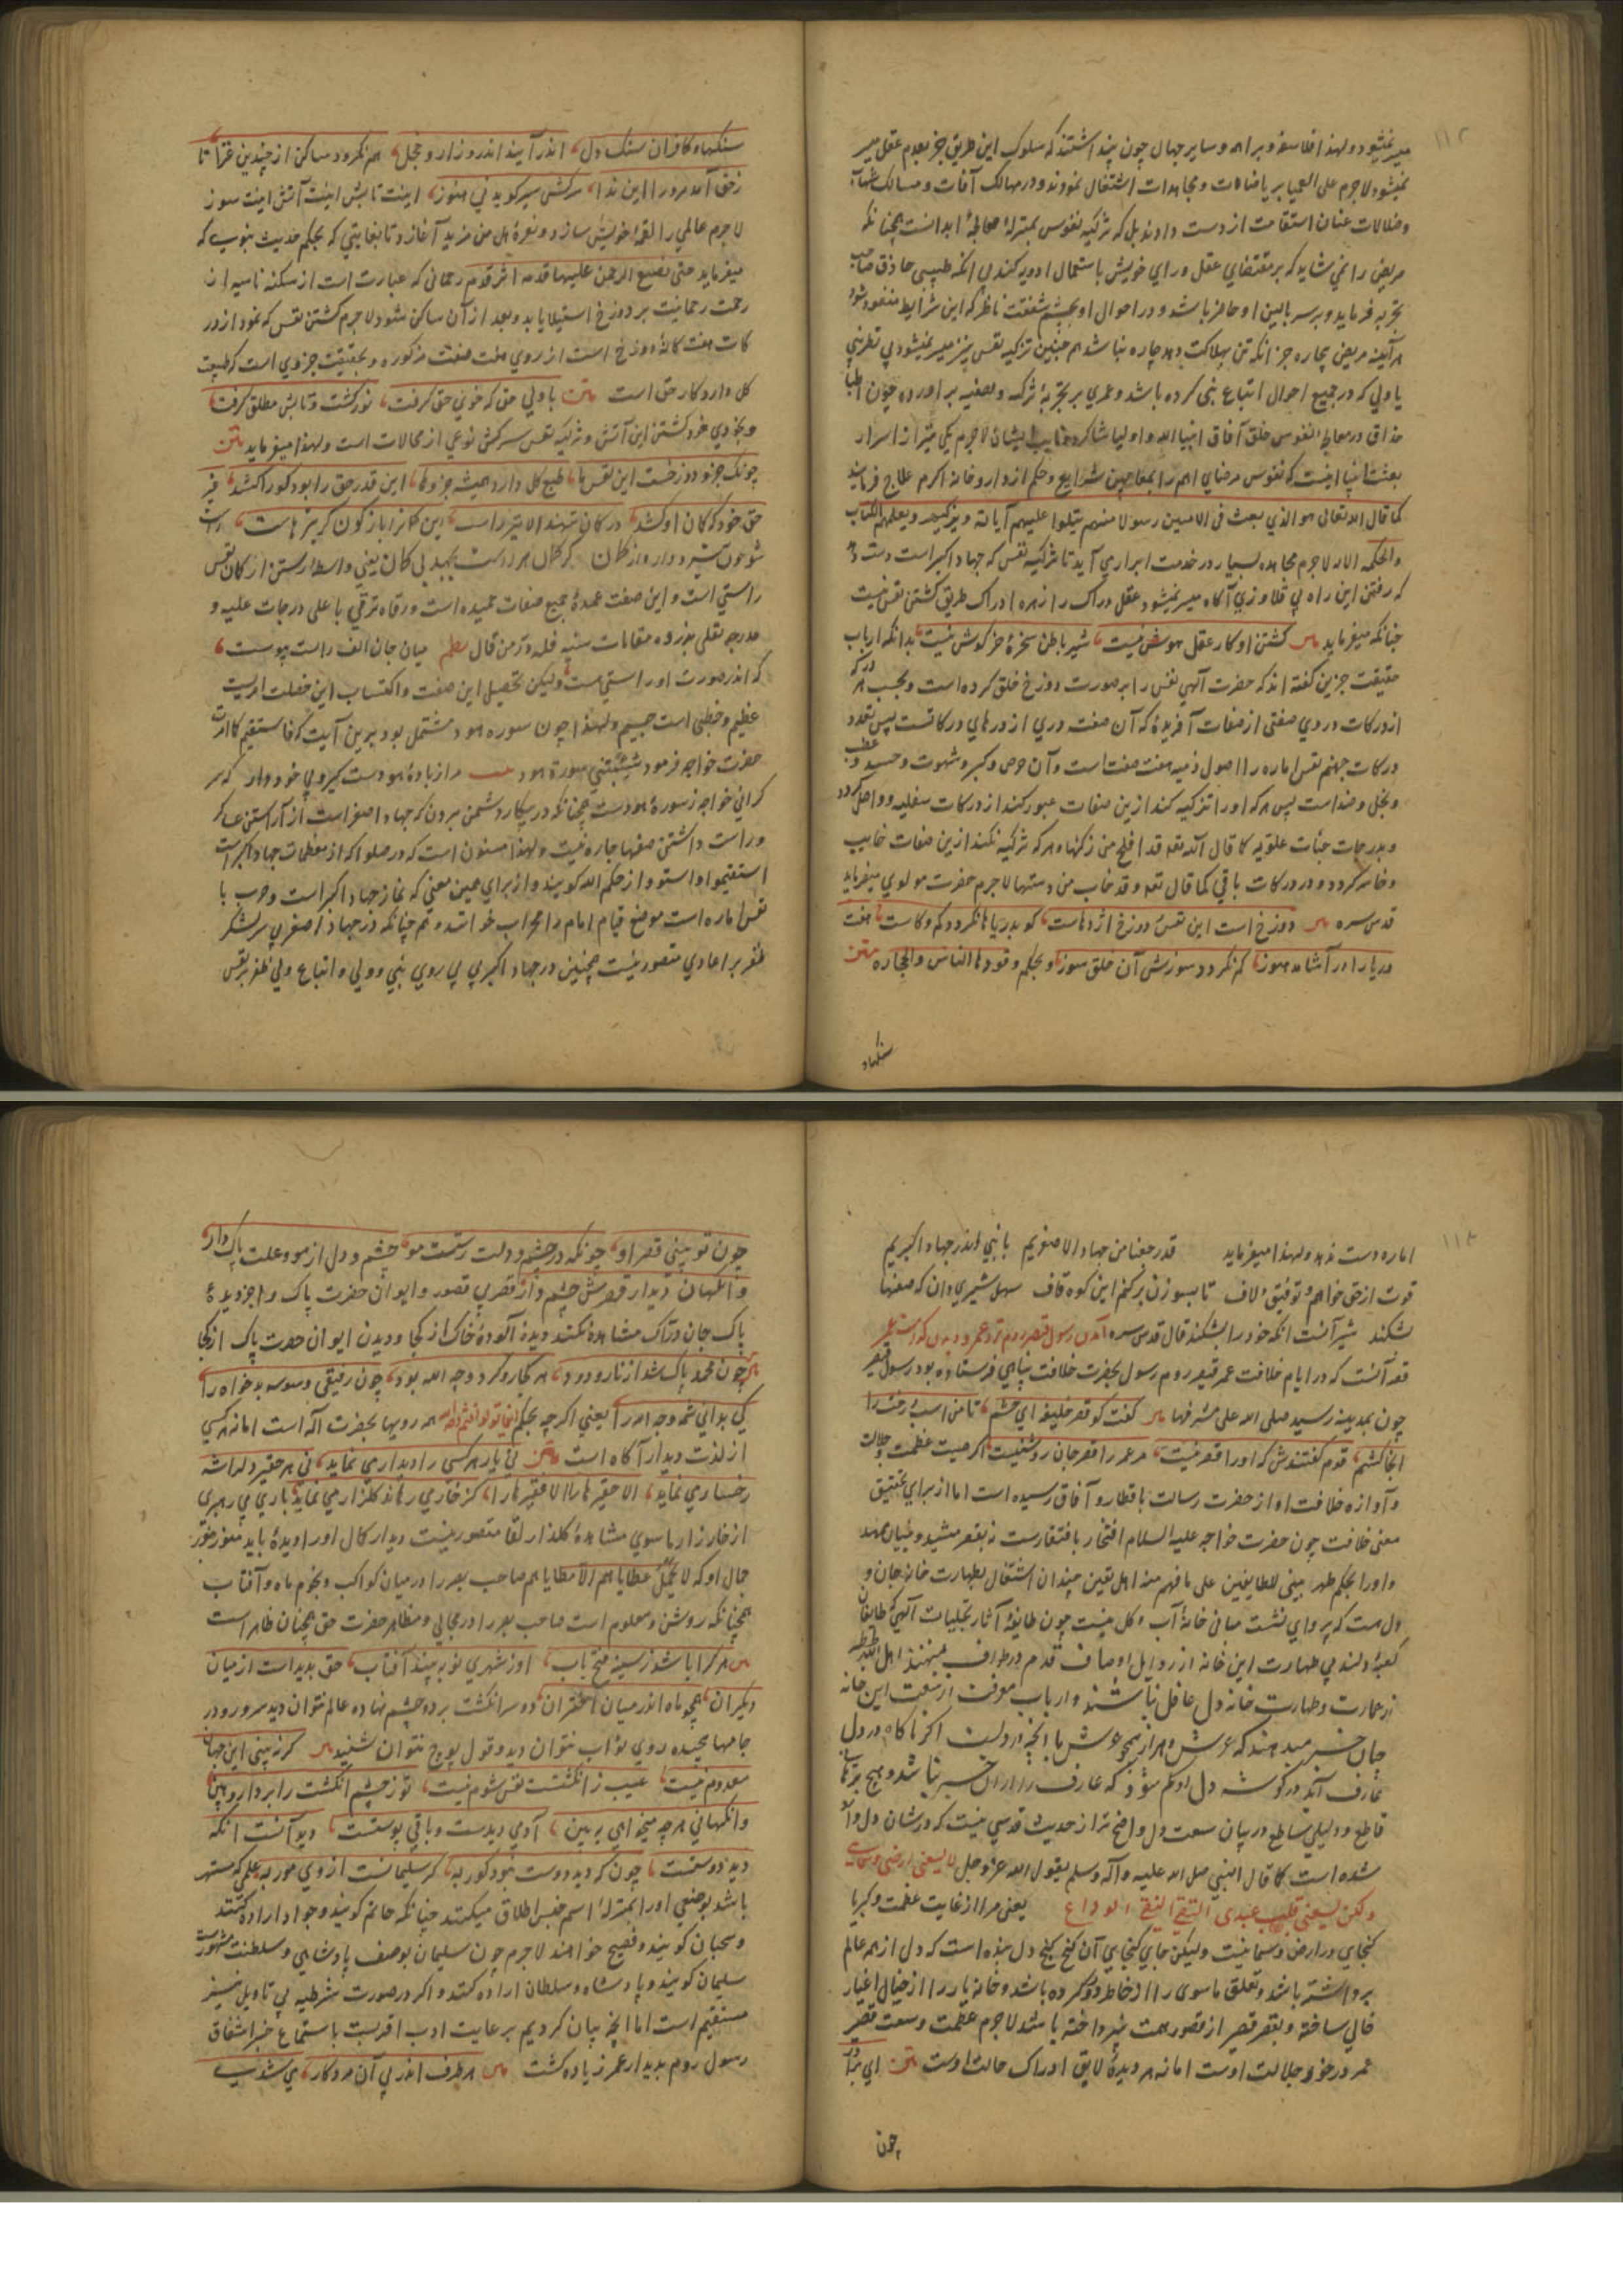 میسر نمیشود و لهذا فلاسفه و براهمه و سایر جهال چون پنداشتند که سلوک این طریق جز بقدم عقل میسر
نمیشود لاجرم علی العمیا بر ریاضات و مجاهدات اشتغال نمودند و در مهالک آفات و مسالک
و ضلالات عنان استقامت از دست دادند بل که تزکیه نفوس بمنزلهٔ معالجهٔ ابدانست همچنانکه
مریض را نمی شاید که بر مقتضای عقل و رای خویش باستعمال ادویه کند بی آنکه طبیبی حاذق صاحب
تجربه فرماید و بر سر بالین او حاضر باشد و در احوال او بچشم شفقت ناظر که این شرایط مفقود شود
هر آینه مریض بیچاره جز آنکه تن بهلاکت دهد چاره نباشد همچنین تزکیه نفس نیز میسر نمیشود بی نظر نبی
یا ولی که در جمیع احوال اتباع نبی کرده باشد و عمری بر تجربهٔ تزکیه و تصفیه بر آورده چون اطبا
حذاق در معالجه نفوس خلق آفاق انبیا الله و اولیا لاجرم یکی از اسرار
بعثت انبیا اینست که نفوس مرضای امم را بمعاجین شرایع و حکم از داروخانه کرم علاج فرمایند
کما قال الله تعالی هو الذی بعث فی الامیین رسولا منهم یتلوا علیهم آیاته و یزکیهم و یعلمهم الکتاب
والحکمه لاجرم مجاهده بسیار در خدمت ابراری آید تا تزکیه نفس که جهاد اکبر است دست دهد
که رفتن این راه بی قلاوزی آگاه میسر نمیشود عقل دراک را زهره ادراک طریق کشتن نفس نیست
چنانکه میفرماید متن کشتن او کار عقل و هوش نیست شیر باطن سخرهٔ خرگوش نیست بدانکه ارباب
حقیقت جزین گفته اند که حضرت الهی نفس را بر صورت دوزخ خلق کرده است و بحسب هر درکه
از درکات در وی صفتی از صفات آفریده که آن صفت دری از درهای درکاتست پس تعدد
درکات جهنم نفس اماره را اصول ذمیمه هفت صفت است و آن حرص و کبر و شهوت و حسد و غضب
و بخل و حقد است پس هر که او را تزکیه کند ازین صفات عبور کند از درکات سفلیه و واصل گردد
و بدرجات جنات علویه کما قال الله تعه قد افلح من زکیها و هر که تزکیه نکند ازین صفات خایب
و خاسر گردد و در درکات باقی کما قال تعه و قد خاب من دسیها لاجرم حضرت مولوی میفرماید
قدس سره متن دوزخ است این نفس و دوزخ اژدهاست کو بدریاها نگردد کم و کاست هفت
دریا را در آشامد هنوز کم نگردد سوزش آن خلق سوز و بحکم وقودها الناس والحجاره متن
سنکهاء
سنکهاء کافران سنک دل اندر آیند اندرو زار و خجل هم نگردد ساکن از چندین غذا تا
ز حق آمد مرورا این ندا سرکش سیر کوید نی هنوز اینت تابش اینت آتش اینت سوز
لاجرم عالمی را لقمهٔ خویش سازد و نعرهٔ هل من مزید آغازد تا بغایتی که بحکم حدیث نبوی که
میفرماید حتی یضع الرحمن علیها قدمه اثر قدوم رحمانی که عبارت است از سکنه ناسیه از
رحمت رحمانیت بر دوزخ استیلا یابد و بعد از آن ساکن شود لاجرم کشتن نفس که نمودار در
کات هفت کانهٔ دوزخ است از روی هفت صفت مذکوره و بحقیقت جزوی است که طبیعت
کل دارد کار حق است متن با ولی حق که خوی حق گرفت نور گشت و تابش مطلق گرفت
و بخودی خود کشتن این آتش و تزکیه نفس سرکش نوعی از محالات است و لهذا میفرماید متن
چونک جزو دوزخست این نفس ما طبع کل دارد همیشه جزوها این قدم حق را بود کورا کشد غیر
حق خود که کمان او کشد در کمان ننهند الا تیر راست این کمان را باژکون کژ تیرهاست راست
شو چون تیر و واره از کمان کز کمان هر راست بجهد بی کمان یعنی واسطهٔ رستن از کمان نفس
راستی است و این صفت عمدهٔ جمیع صفات حمیده است و رقاه ترقی باعلی درجات علیه و
مدرجه تعلی بذروه مقامات سنیه فلله در من قال نظم میان جان الف راست پیوست
که اندر صورت او راستی هست ولیکن تحصیل این صفت و اکتساب این خصلت امریست
عظیم و خطبی است جسیم و لهذا چون سوره هود مشتمل بود برین آیت که فاستقم کما امرت
حضرت خواجه فرمود شیبتنی سورة هود مرا ز بادهٔ هودست که سر
گرانی خواجه ز سورهٔ هودست همچنانکه در پیکار دشمن برون که جهاد اصغر است از آراستن عسکر
و راست داشتن صفها چاره نیست و لهذا مسنون است که در صلوه که از معظمات جهاد اکبر است
استقیموا و استووا رحمکم الله گویند و از برای همین معنی که نماز جهاد اکبر است و حرب با
نفس اماره است موضع قیام امام را محراب خوانند و هم چنانکه در جهاد اصغر بی سر لشکر
ظفر بر اعادی متصور نیست همچنین در جهاد اکبر بی پی روی نبی و ولی و اتباع ولی ظفر بر نفس
اماره دست ندهد و لهذا میفرماید قد رجعنا من جهاد الاصغریم با نبی اندر جهاد اکبریم
قوت از حق خواهم و توفیق و لاف تا بسوزن برکنم این کوه قاف سهل شیری دان که صفها
بشکند شیر آنست آنکه خود را بشکند قال قدس سره آمدن رسول قیصر روم نزد عمر
قصه آنست که در ایام خلافت عمر قیصر روم رسول بحضرت خلافت پناهی فرستاده بود رسول قیصر
چون بمدینه رسید صلی الله علی مشرفها متن گفت کو قصر خلیفه ای حشم تا من اسب و رخت را
آنجا کشم قوم گفتندش که او را قصر نیست مر عمر را قصر جان روشنیست اگر صیت عظمت و جلالت
و آوازه خلافت او از حضرت رسالت باقطار و آفاق رسیده است اما از برای تحقیق
معنی خلافت چون حضرت خواجه علیه السلام افتخار بافتقارست نه بقصر مشید و بنیان ممهد
و او را بحکم طهر بیتی للطایفین علی ما فهم منه اهل یقین چندان اشتغال بطهارت خانه جان و
دل هست که پروای نشست مبانی خانهٔ آب و گل نیست چون طایفهٔ آثار تجلیات الهی که طایفان
کعبهٔ دلند بی طهارت این خانه از رذایل اوصاف قدم در طواف نمینهند اهل الله
از عمارت و طهارت خانه دل غافل نباشند و ارباب معرفت از سعت این خانه
چنان خبر میدهند که عرش و هزار همچو عرش با آنچه دروست اگر ناگاه در دل
عارف آید در گوشه دل او گم شود که عارف را از آن خبر نباشد و هیچ برهان
قاطع و دلیلی ساطع در بیان سعت دل واضح تر از حدیث قدسی نیست که در شان دل وارد
شده است کما قال النبی صلی الله علیه وآله وسلم یقول الله عز و جل لا یسعنی ارضی و سمائی
ولکن یسعنی قلب عبدی التقی النقی الوداع یعنی مرا از غایت عظمت و کبریا
گنجای در ارض و سما نیست ولیکن جای گنجایی آن گنج کنج دل بنده است که دل از همه عالم
برداشته باشد و تعلق ماسوی را از خاطر دور کرده باشد و خانه یار را از خیال اغیار
خالی ساخته و بقصر قیصر از قصور همت نپرداخته باشد لاجرم عظمت و سعت قصر
عمر درخور جلالت اوست اما نه هر دیدهٔ لایق ادراک حالت اوست متن ای برادر
چون
چون تو بینی قصر او چونکه در چشم و دلت رستست مو چشم و دل از مو و علت پاک دار
وانگهان دیدار قصرش چشم دار قصر بی قصور و ایوان حضرت پاک را جز دیدهٔ
پاک جان دراک مشاهده نکند دیدهٔ آلودهٔ خاک از کجا و دیدن ایوان حضرت پاک از کجا
متن چون محمد پاک شد از نار و دود هر کجا رو کرد وجه الله بود چون رفیقی وسوسه بدخواه را
کی بدانی ثم وجه الله را یعنی اگر چه بحکم اینما تولوا فثم وجه الله همه رویها بحضرت اله است اما نه هر کسی
از لذت دیدار آگاه است متن نی یار هر کسی را دیداری نماید نی هر حقیر دلرا
رخساری نماید الا حقیرها را الا فقیرها را کز خار می رهاند گلزار می نماید باری بی رهبری
از خارزار ما سوی مشاهدهٔ گلزار لقا متصور نیست دیدار کمال او را دیدهٔ باید منور بنور
جمال او که لا یحمل عطایاهم الا مطایاهم صاحب بصر را در میان کواکب و نجوم ماه و آفتاب
همچنانکه روشن و معلوم است صاحب بصر را در مجالی و مظاهر حضرت حق همچنان ظاهر است
متن هر کرا باشد ز سینه فتح باب او ز شهری نو ببیند آفتاب حق پدیدست از میان
دیگران همچو ماه اندر میان اختران دو سر انگشت بر دو چشم نهاده عالم نتوان دید سر و رو در
جامها پیچیده روی نواب نتوان دید و قول نتوان شنید متن گر نبینی این جهان
معدوم نیست عیب ز انگشت نفس شوم نیست تو ز چشم انگشت را بردار و هین
وانگهانی هر چه میخواهی ببین آدمی دیدست و باقی پوستست دید آنست آنکه
دید دوستست چون که دید دوست نبود کور به گر سلیمانست از وی مور به علمی که مشتهر
باشد بوصفی او را بمنزلهٔ اسم جنس اطلاق میکنند چنانکه حاتم گویند و جواد اراده کنند
و سحبان گویند و فصیح خواهند لاجرم چون سلیمان بوصف پادشاهی و سلطنت مشهورست
سلیمان گویند و پادشاه و سلطان اراده کنند و اگر در صورت شرطیه بی تاویل نیز
مستقیم است اما آنچه بیان کردیم برعایت ادب اقربست باستماع خبر اشفاق
رسول روم بدیدار عمر زیاده گشت متن هر طرف اندر پی آن مرد کار می شدی